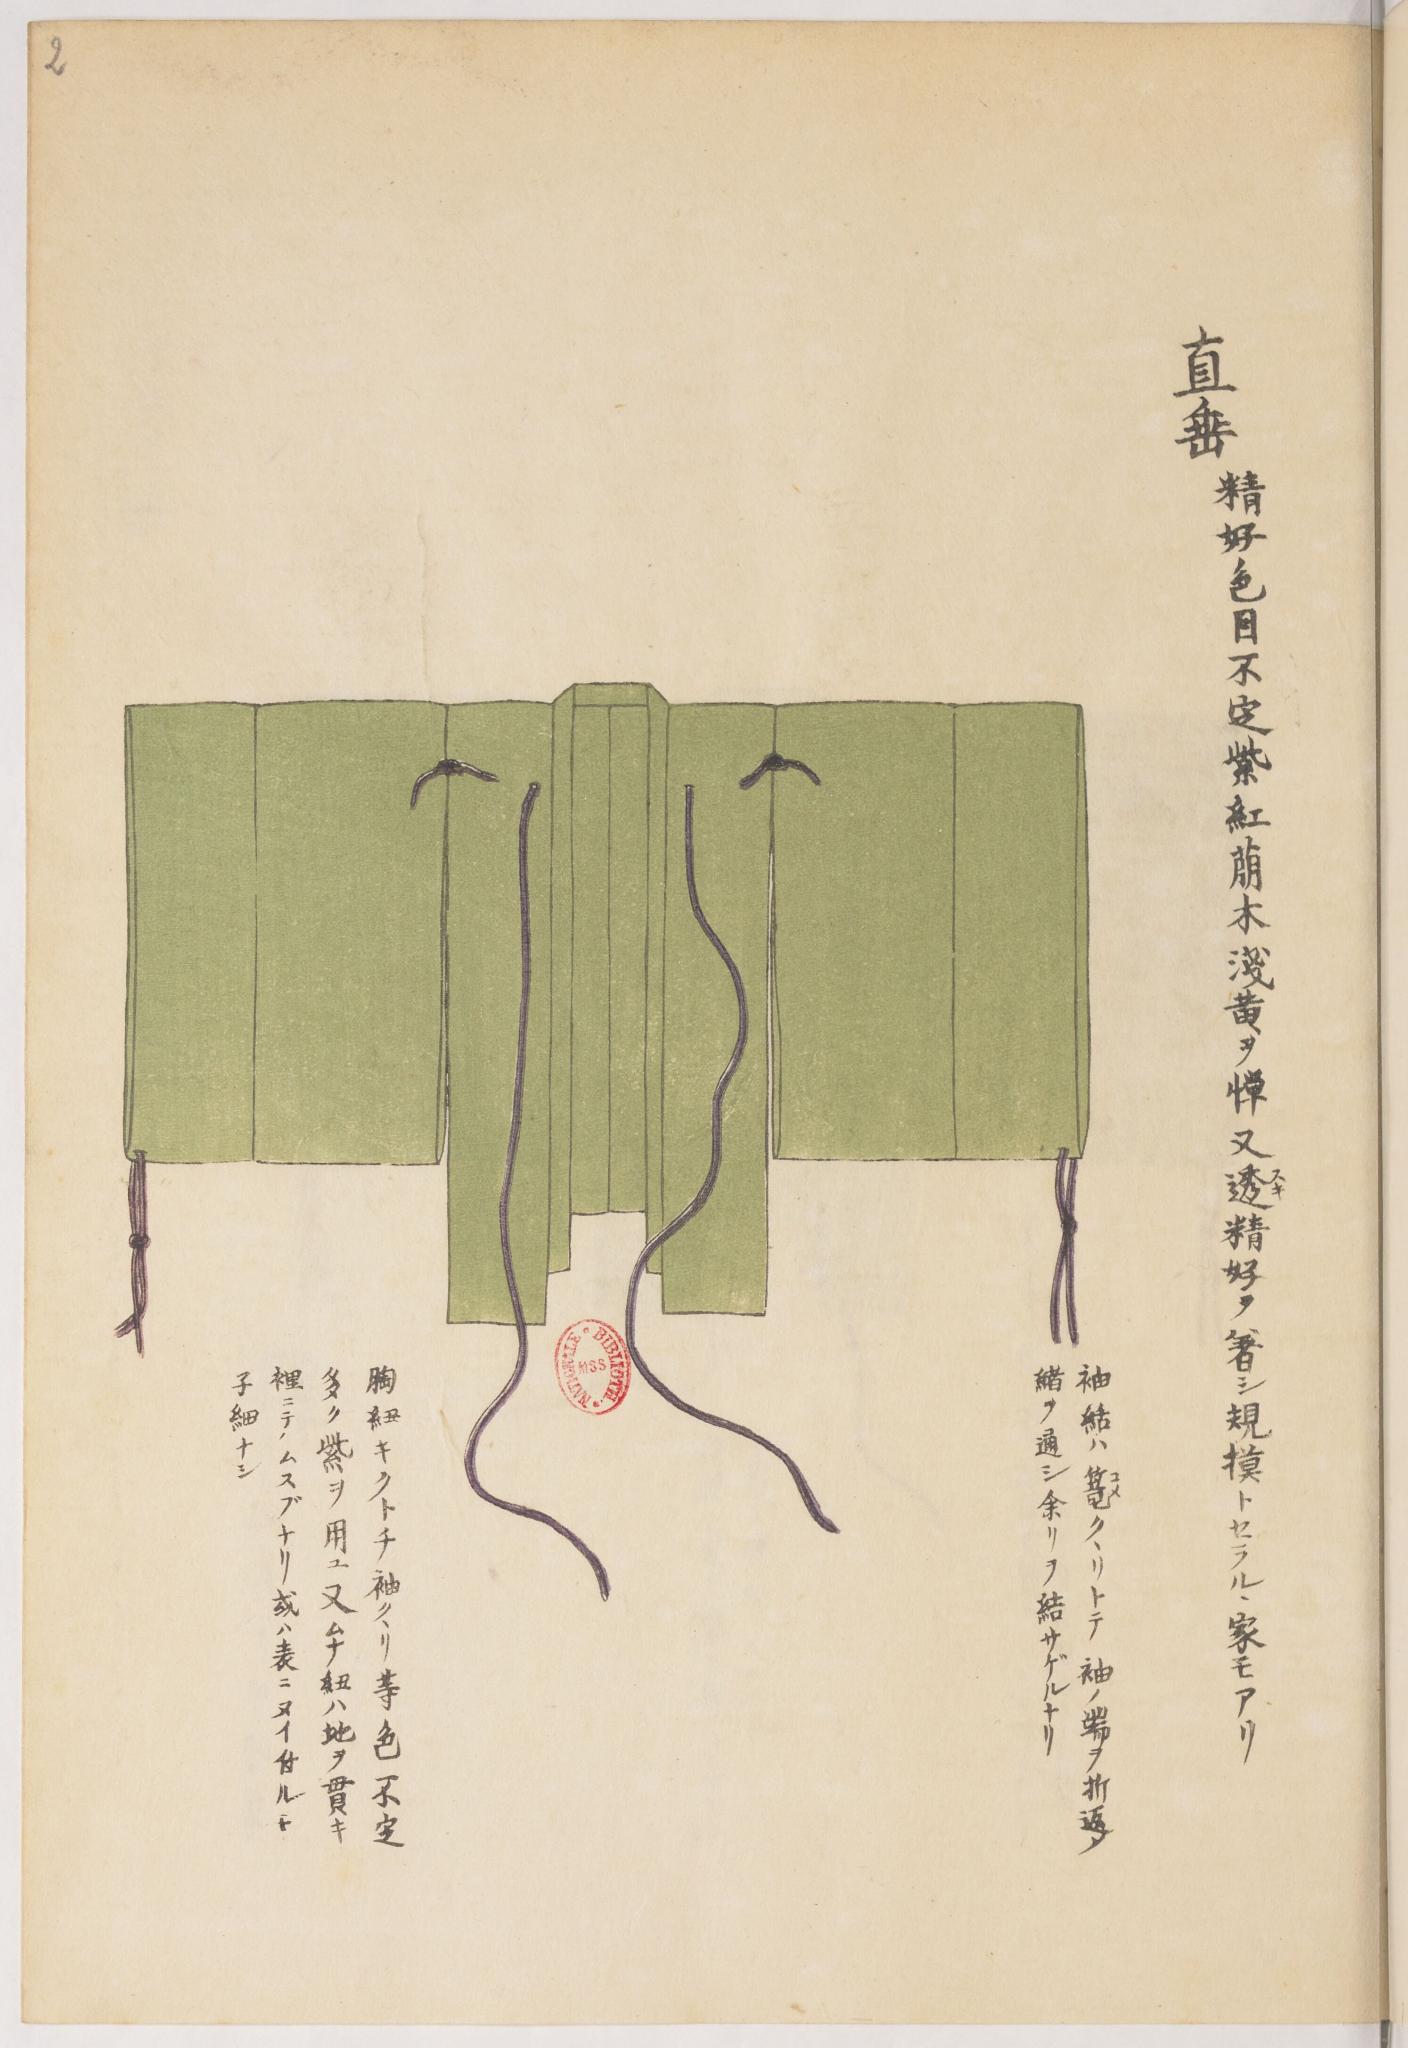 2
直垂
精好色目不定紫紅萠木浅黄ヲ憚又透精好ヲ著シ規摸トセラルヽ家モアリ
スキ
袖結ハ篭クヽリトテ袖ノ端ヲ折返ヲ
コメ
緒ヲ通シ余リヲ結サゲルナリ
胸紐キクトチ袖クヽリ等色不定
多ク紫ヲ用ユ又ムナ紐ハ地ヲ貫キ
裡ニテムスブナリ或ハ表ニヌイ付ルモ
子細ナシ
BIBLIOTH. NATIONALE MSS